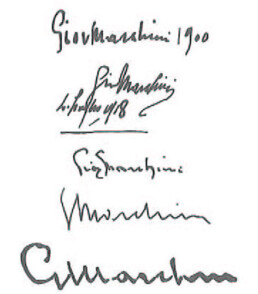 Giov Maschini 1900
Gio Maschini
1918
Gio Maschini
GMaschini
GMaschini